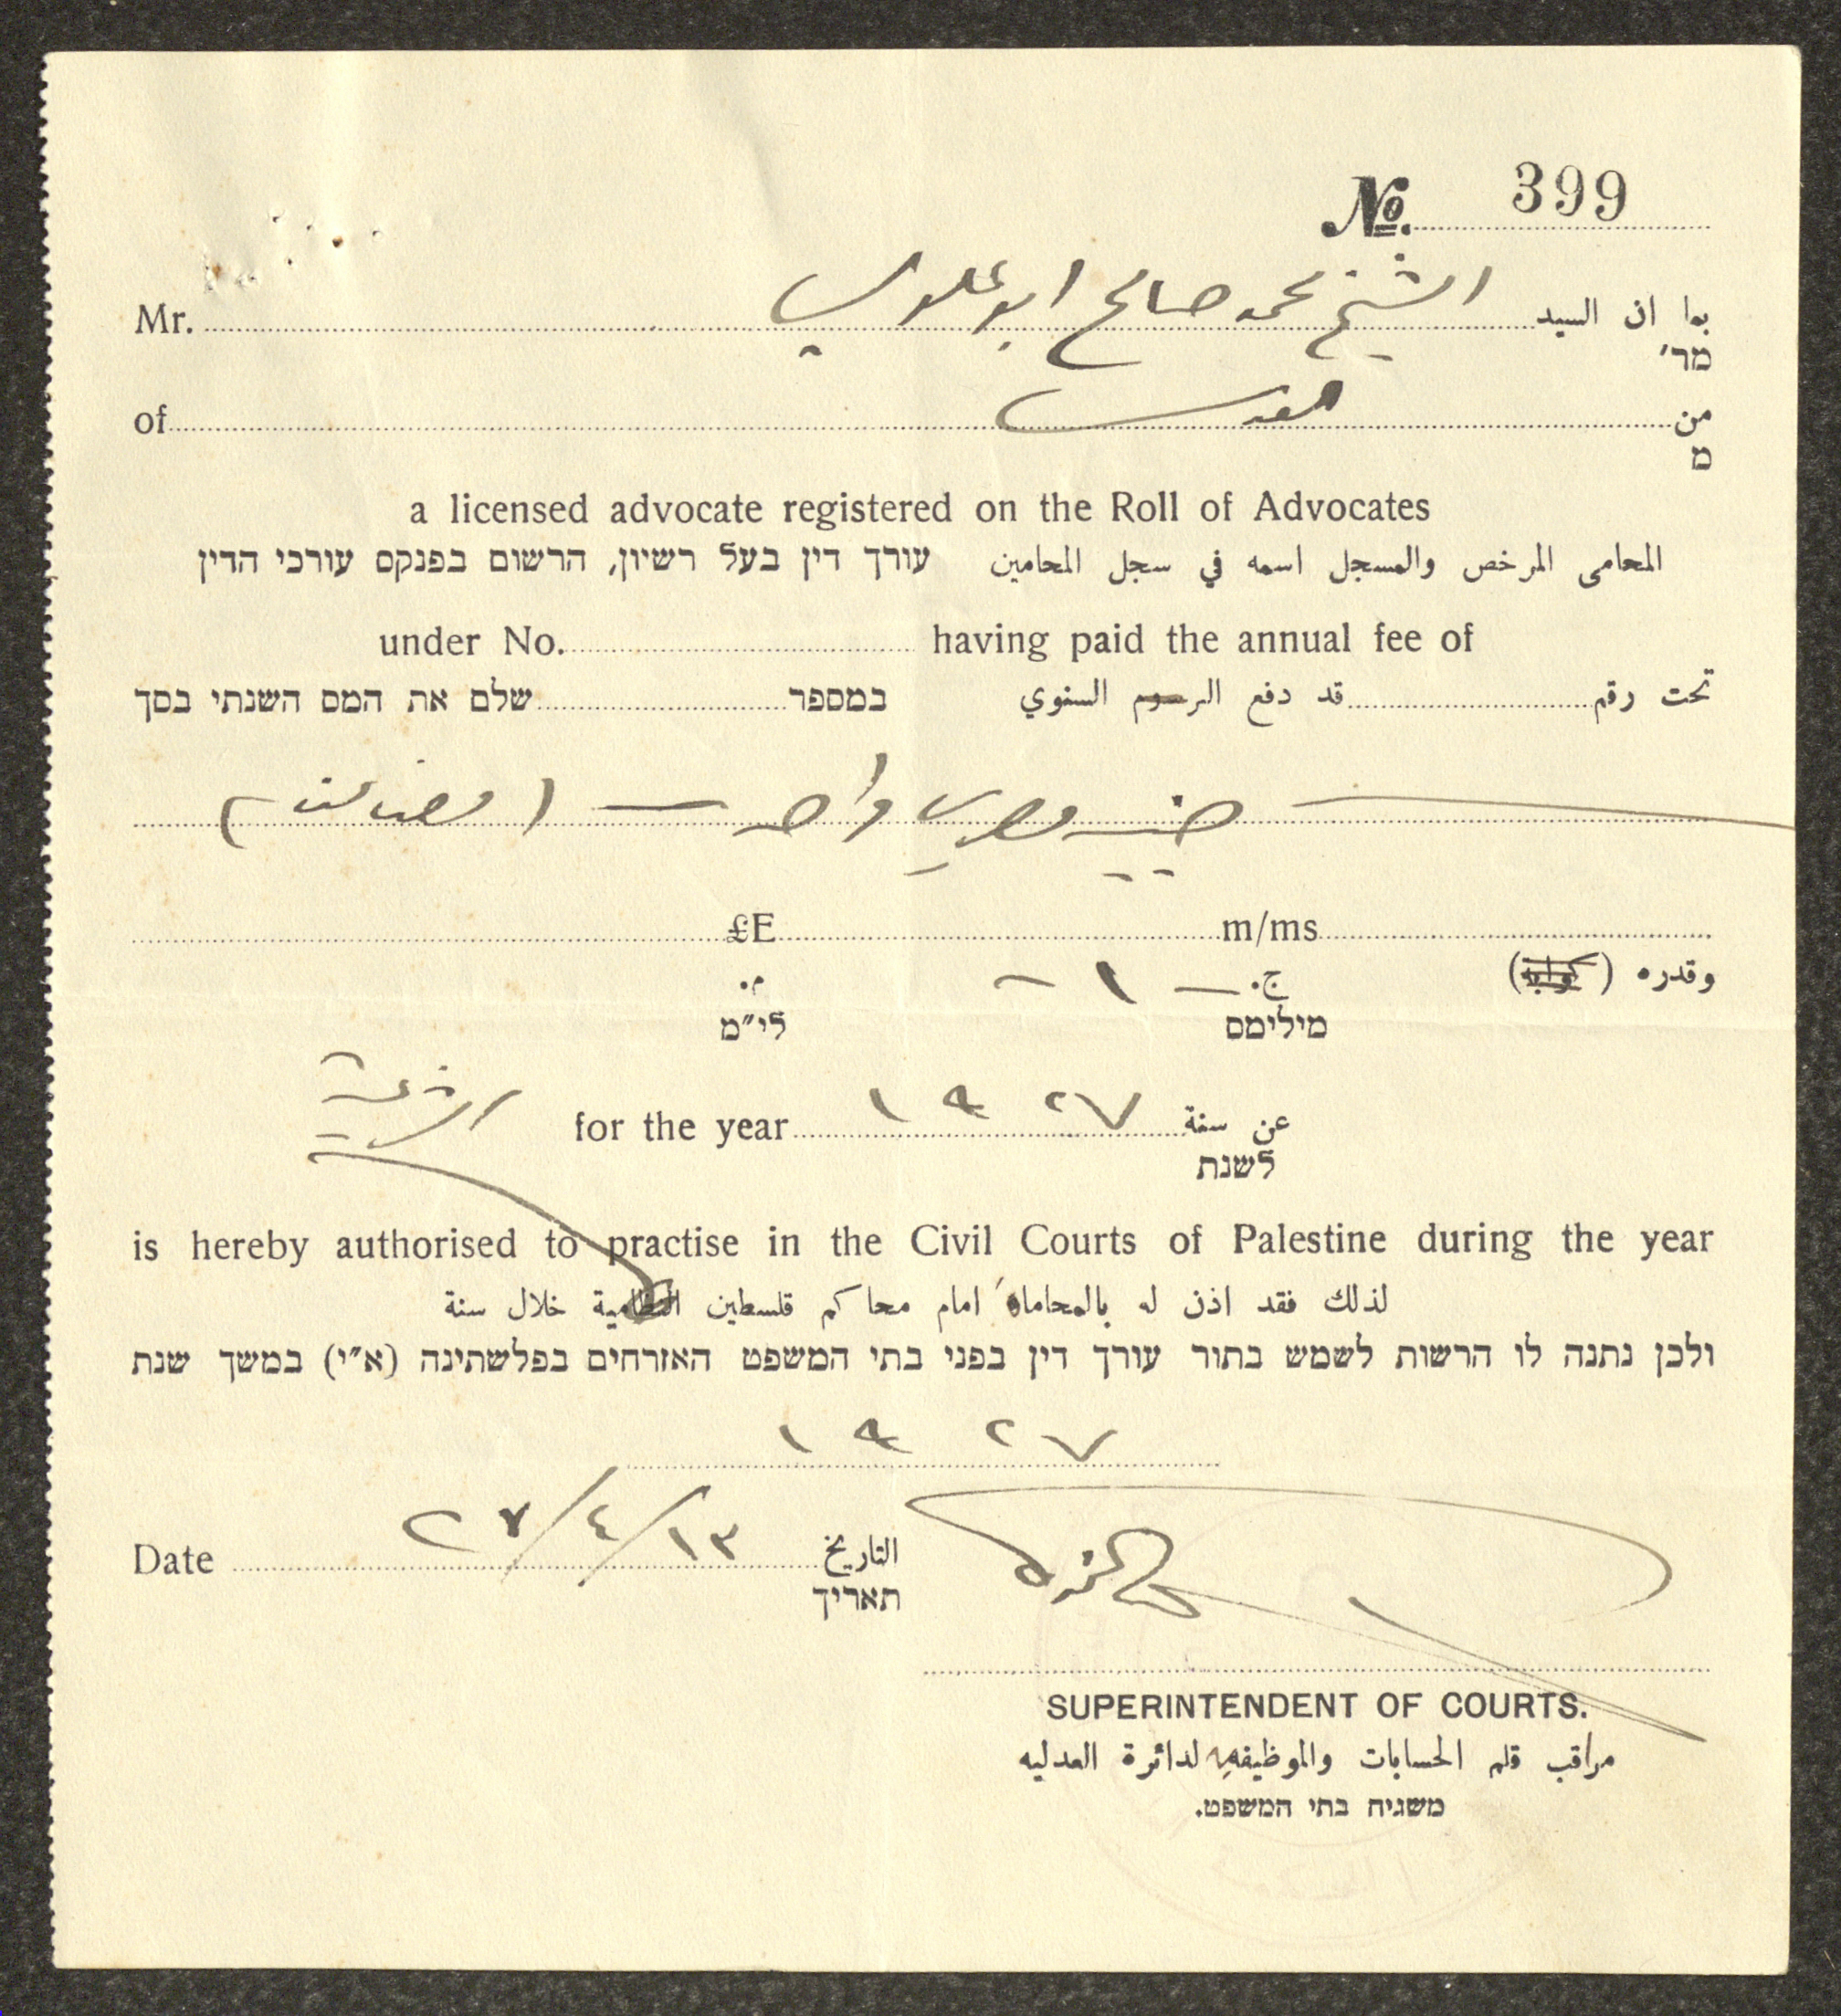 No. 399
Mr. الشيخ محمد صالح ابو علوي بما ان السيد
מר׳
of القدس من
מ
a licensed advocate registered on the Roll of Advocates
المحامى المرخص والمسجل اسمه في سجل المحامين עורך דין בעל רשיון, הרשום בפנקס עורכי הדין
under No. having paid the annual fee of
تحت رقم قد دفع الرسوم السنوي במספר שלם את המס השנתי בסך
جنيه مصري واحد
£E m/ms
وقدره ( ) ج. — ١ — م.
מילימס לי״מ
الشرعية for the year ١٩٢٧ عن سنة
לשנת
is hereby authorised to practise in the Civil Courts of Palestine during the year
لذلك فقد اذن له بالمحاماة امام محاكم فلسطين النظامية خلال سنة
ולכן נתנה לו הרשות לשמש בתור עורך דין בפני בתי המשפט האזרחים בפלשתינה (א״י) במשך שנת
١٩٢٧
Date ١٣/٤/٢٧ التاريخ
תאריך
SUPERINTENDENT OF COURTS.
مراقب قلم الحسابات والموظيفه لدائرة العدليه
משגיח בתי המשפט.